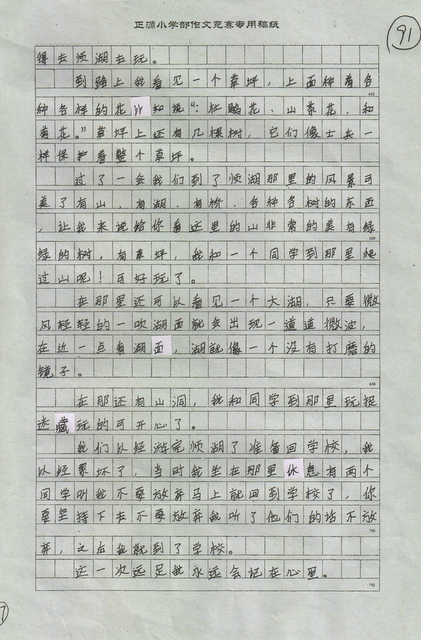 正源小学部作文竞赛专用稿纸
91
得去顺湖去玩。
到路上我看见一个草坪，上面种着各
种各样的花比如说“：杜鹃花、山茶花、和
菊花。”草坪上还有几棵树，它们像士兵一
样保护着整个草坪。
过了一会我们到了顺湖那里的风景可
美了有山、有湖、有桥、各种各树的东西
，让我来说给你看这里的山非常的美有绿
绿的树，有草坪，我和一个同学到那里爬
过山呢！可好玩了。
在那里还可以看见一个大湖，只要微
风轻轻的一吹湖面就会出现一道道微波，
在近一点看湖面，湖就像一个没有打磨的
镜子。
在那还有山洞，我和同学到那里玩捉
迷藏玩的可开心了。
我们以经游完顺湖了准备回学校，我
以经累坏了，当时我坐在那里休息有两个
同学叫我不要放弃马上就回到学校了，你
要坚持下去不要放弃我听了他们的话不放
弃，之后我就到了学校。
这一次远足我永远会记在心里。